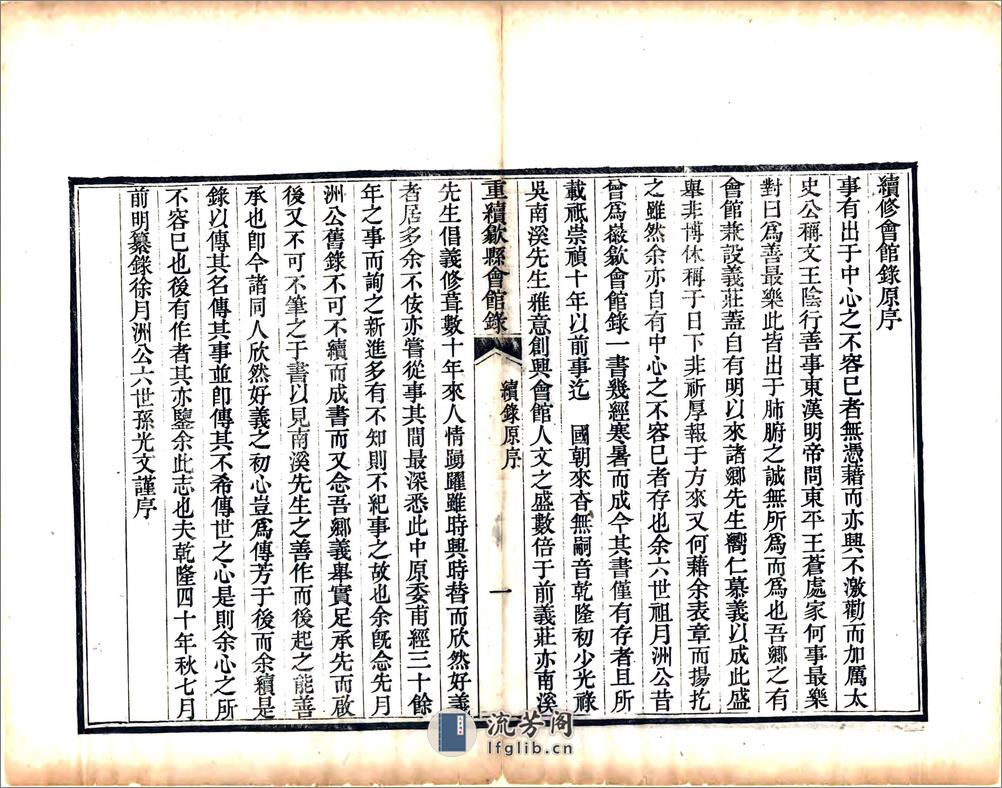 續修會館錄原序
事有出于中心之不容已者無憑藉而亦興不激勸而加厲太
史公稱文王陰行善事東漢明帝問東平王蒼處家何事最樂
對曰爲善最樂此皆出于肺腑之誠無所爲而爲也吾鄉之有
會館兼設義莊蓋自有明以來諸鄉先生嚮仁慕義以成此盛
舉非博休稱于日下非祈厚報于方來又何藉余表章而揚扢
之雖然余亦自有中心之不容已者存也余六世祖月洲公昔
曾爲嶽歙會館錄一書幾經寒暑而成今其書僅有存者且所
載祇崇禎十年以前事迄 國朝來杳無嗣音乾隆初少光祿
吳南溪先生雅意創興會館人文之盛數倍于前義莊亦南溪
重續歙縣會館錄 續錄原序 一
先生倡義修葺數十年來人情踴躍雖時興時替而欣然好義
者居多余不佞亦嘗從事其間最深悉此中原委甫經三十餘
年之事而詢之新進多有不知則不紀事之故也余旣念先月
洲公舊錄不可不續而成書而又念吾鄉義舉實足承先而啟
後又不可不筆之于書以見南溪先生之善作而後起之能善
承也卽今諸同人欣然好義之初心豈爲傳芳于後而余續是
錄以傳其名傳其事並卽傳其不希傳世之心是則余心之所
不容已也後有作者其亦鑒余此志也夫乾隆四十年秋七月
前明纂錄徐月洲公六世孫光文謹序
流芳阁
lfglib.cn